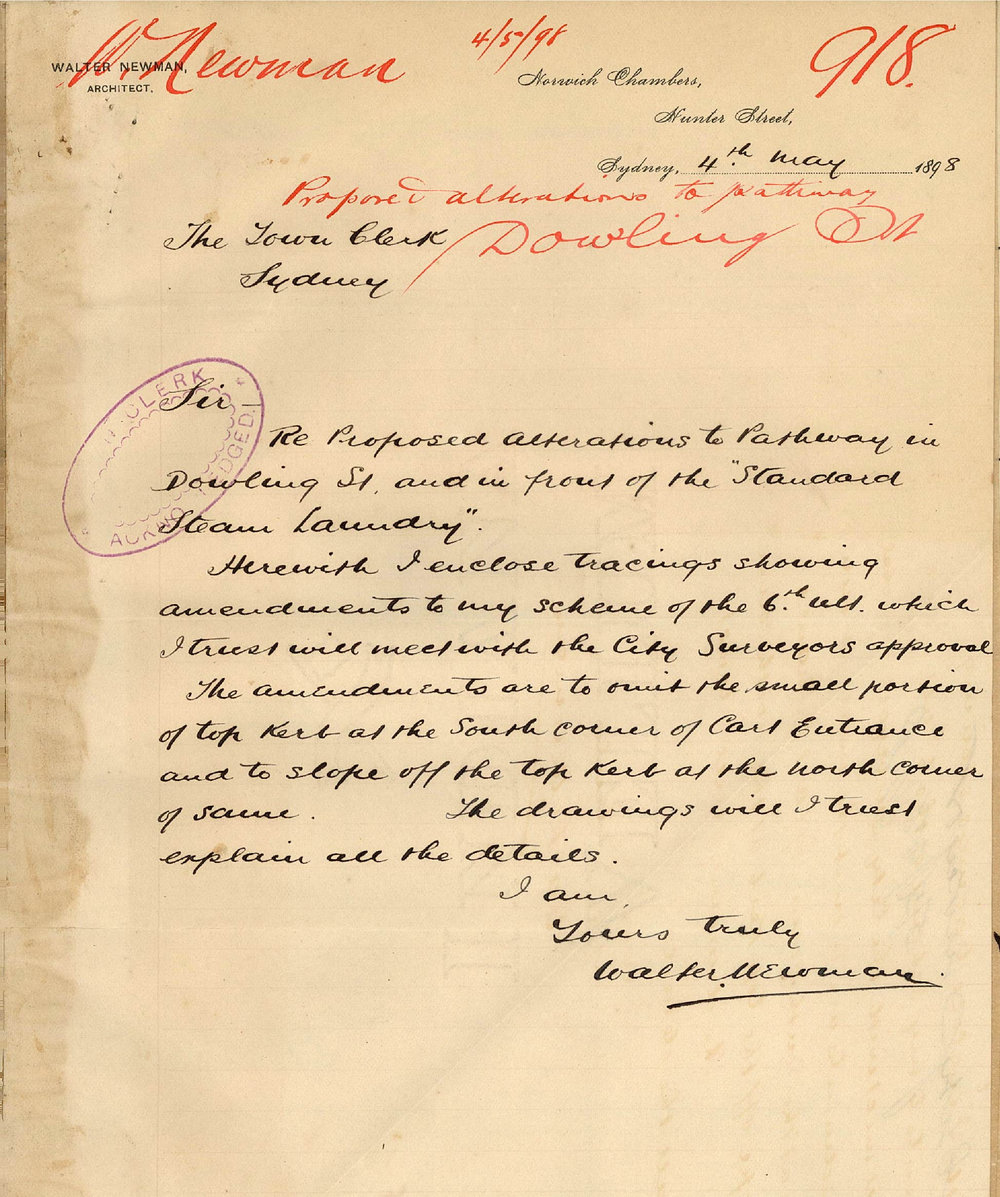 W. Newman
4/5/98
918.
WALTER NEWMAN,
ARCHITECT.
Norwich Chambers,
Hunter Street,
Sydney, 4th May 1898
Proposed alterations to pathway
Dowling St
The Town Clerk
Sydney
CLERK
ACKNOWLEDGED.
Sir -
Re Proposed Alterations to Pathway in
Dowling St, and in front of the "Standard
Steam Laundry".
Herewith I enclose tracings showing
amendments to my scheme of the 6th ult. which
I trust will meet with the City Surveyors approval
The amendments are to omit the small portion
of top Kerb at the South corner of Cart Entrance
and to slope off the top Kerb at the north corner
of same. The drawings will I trust
explain all the details.
I am,
Yours truly
Walter Newman.